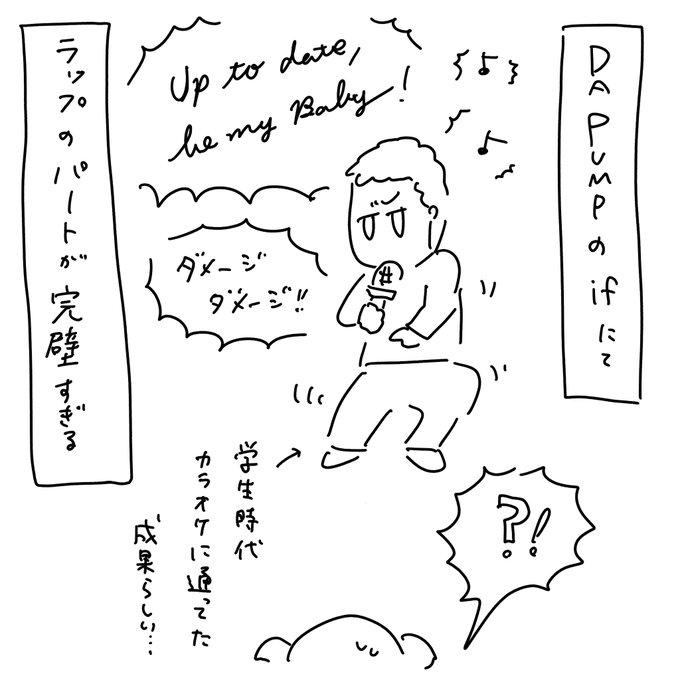 DA PUMPの ifにて
Up to date,
be my Baby!
ダメージ
ダメージ!!
ラップのパートが完璧すぎる
学生時代
カラオケに通ってた
成果らしい…
?!